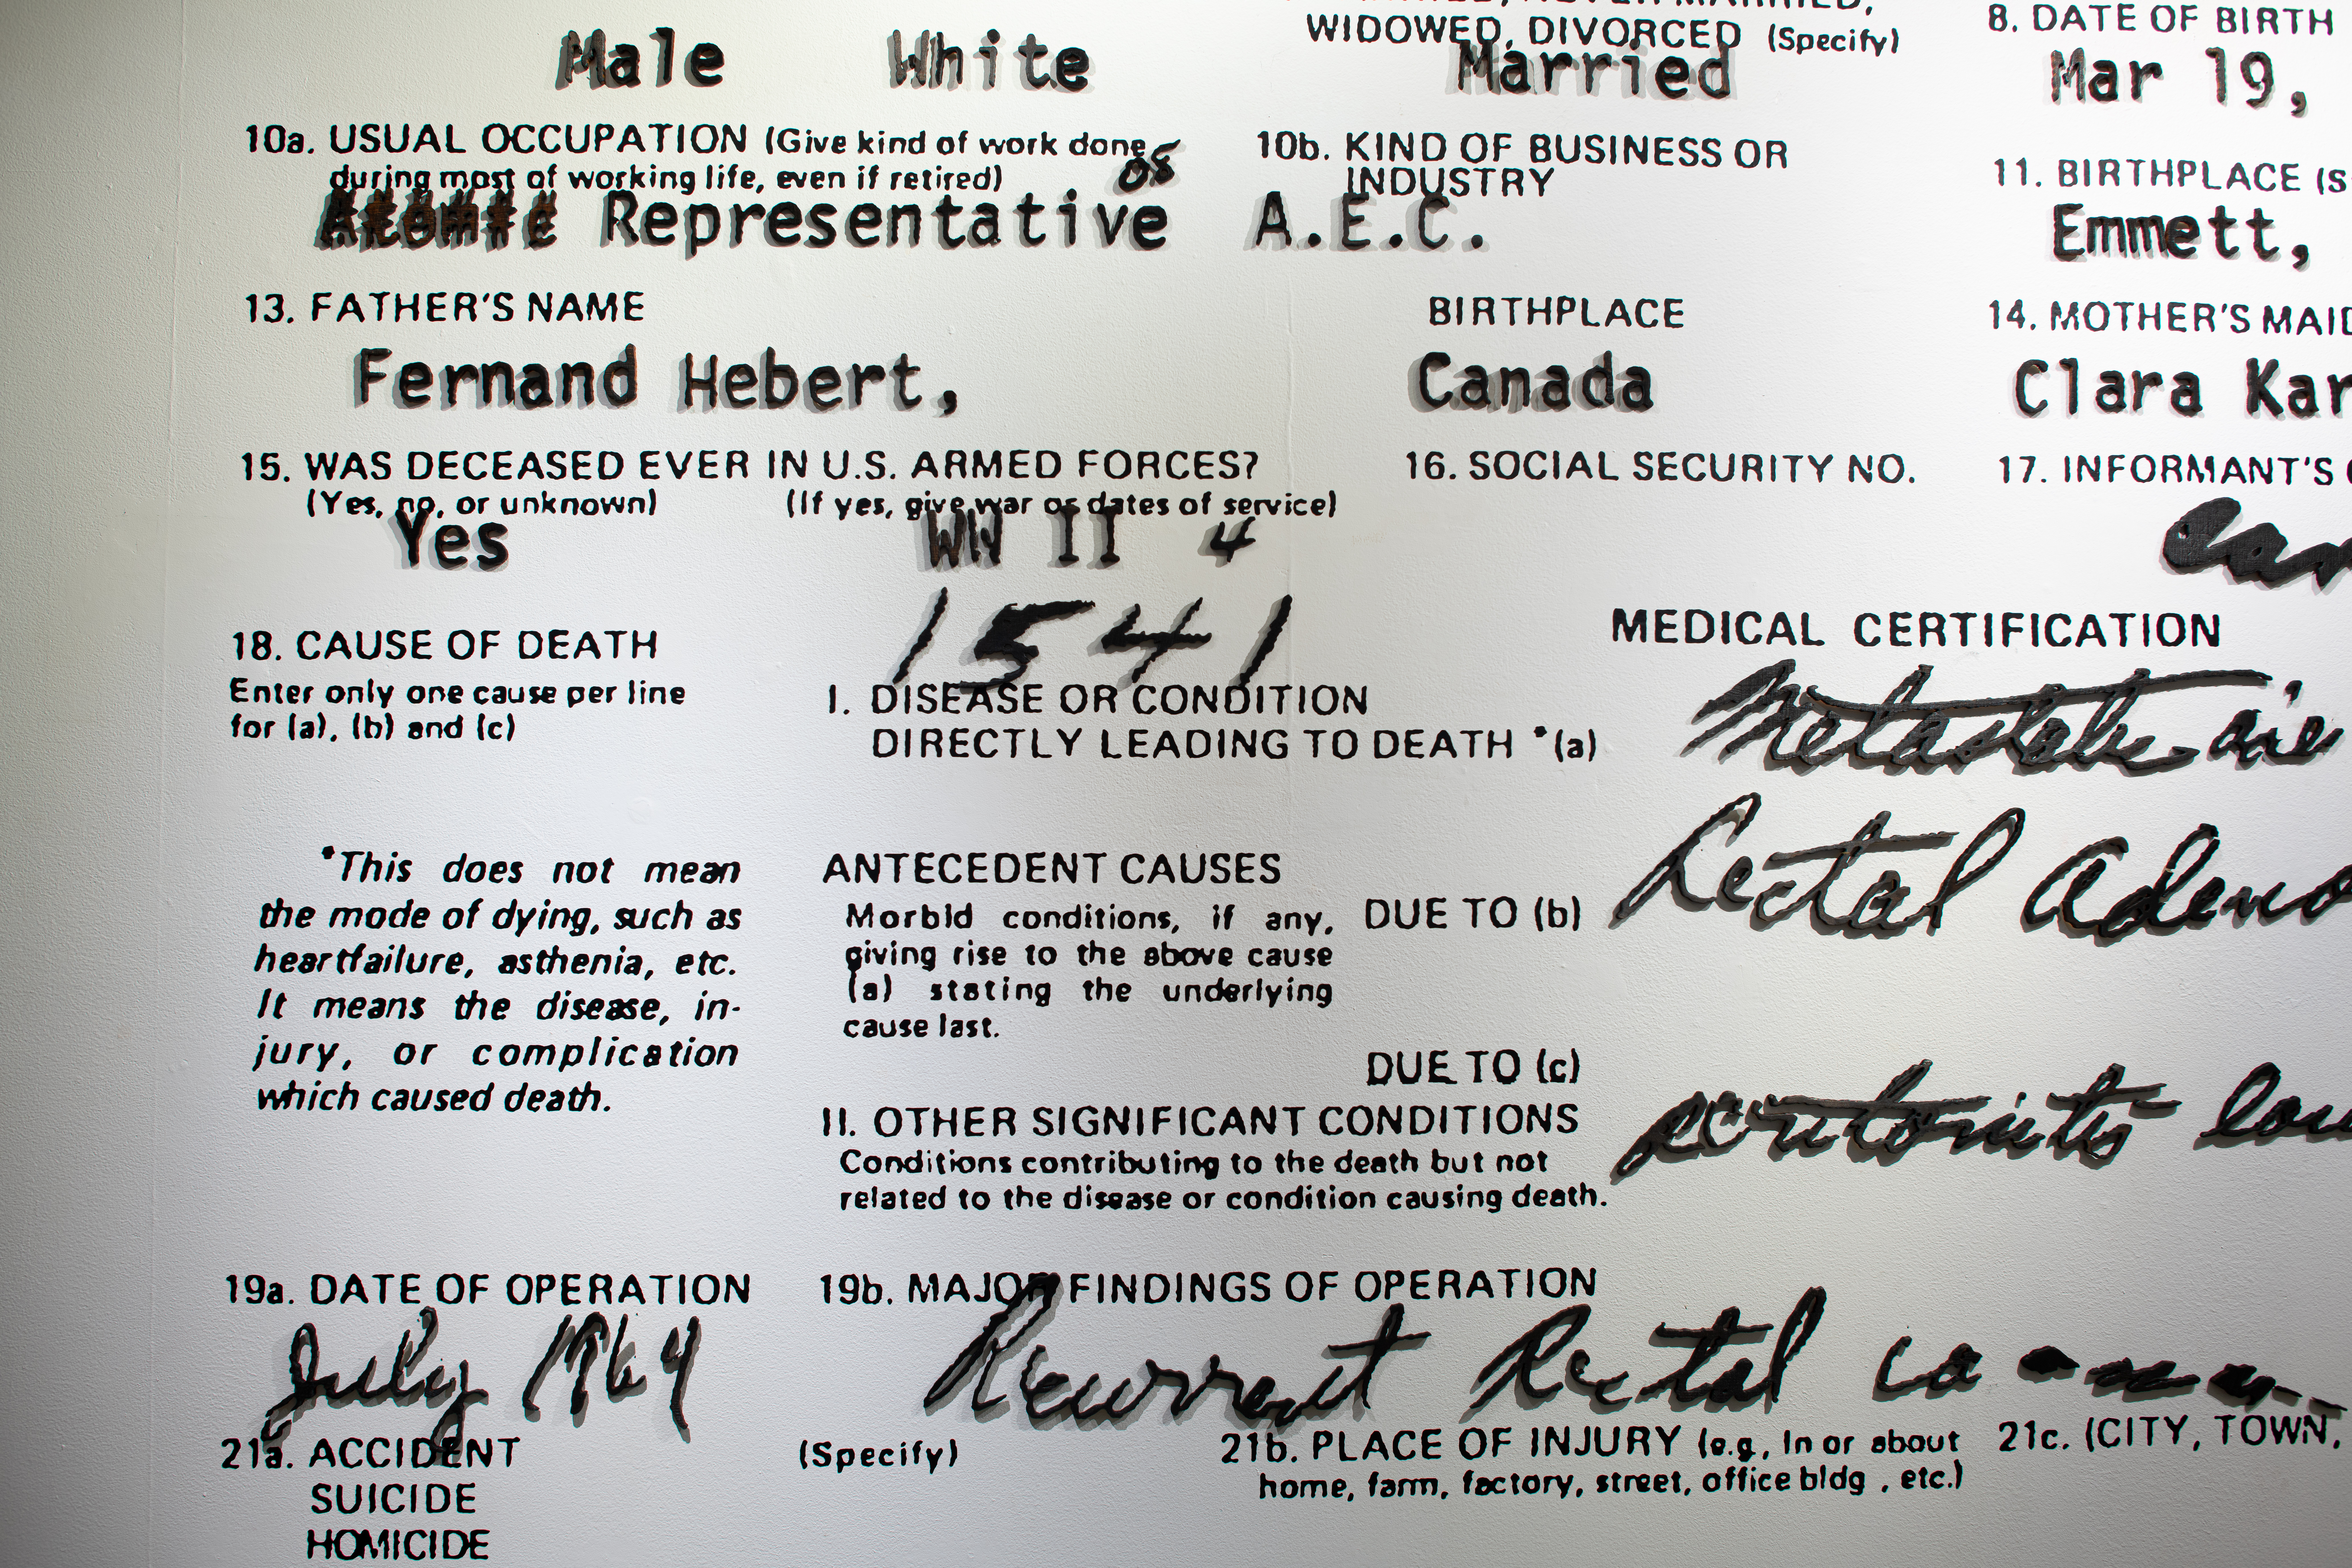 WIDOWED, DIVORCED (Specify)
8. DATE OF BIRTH
Male White Married Mar 19,
10a. USUAL OCCUPATION (Give kind of work done
during most of working life, even if retired)
10b. KIND OF BUSINESS OR
INDUSTRY
11. BIRTHPLACE (S
Representative A.E.C. Emmett,
13. FATHER'S NAME BIRTHPLACE 14. MOTHER'S MAID
Fernand Hebert, Canada Clara Kar
15. WAS DECEASED EVER IN U.S. ARMED FORCES? 16. SOCIAL SECURITY NO. 17. INFORMANT'S
(Yes, no, or unknown) (If yes, give war or dates of service)
Yes WW II 4
1541
18. CAUSE OF DEATH
Enter only one cause per line
for (a), (b) and (c)
MEDICAL CERTIFICATION
I. DISEASE OR CONDITION
DIRECTLY LEADING TO DEATH *(a)
*This does not mean
the mode of dying, such as
heartfailure, asthenia, etc.
It means the disease, in-
jury, or complication
which caused death.
ANTECEDENT CAUSES
Morbid conditions, if any,
giving rise to the above cause
(a) stating the underlying
cause last.
DUE TO (b) Rectal Adeno
DUE TO (c)
II. OTHER SIGNIFICANT CONDITIONS
Conditions contributing to the death but not
related to the disease or condition causing death.
peritonitis
19a. DATE OF OPERATION 19b. MAJOR FINDINGS OF OPERATION
July 1964 Recurrent Rectal ca
21a. ACCIDENT
SUICIDE
HOMICIDE
(Specify)
21b. PLACE OF INJURY (e.g., In or about
home, farm, factory, street, office bldg , etc.)
21c. (CITY, TOWN,